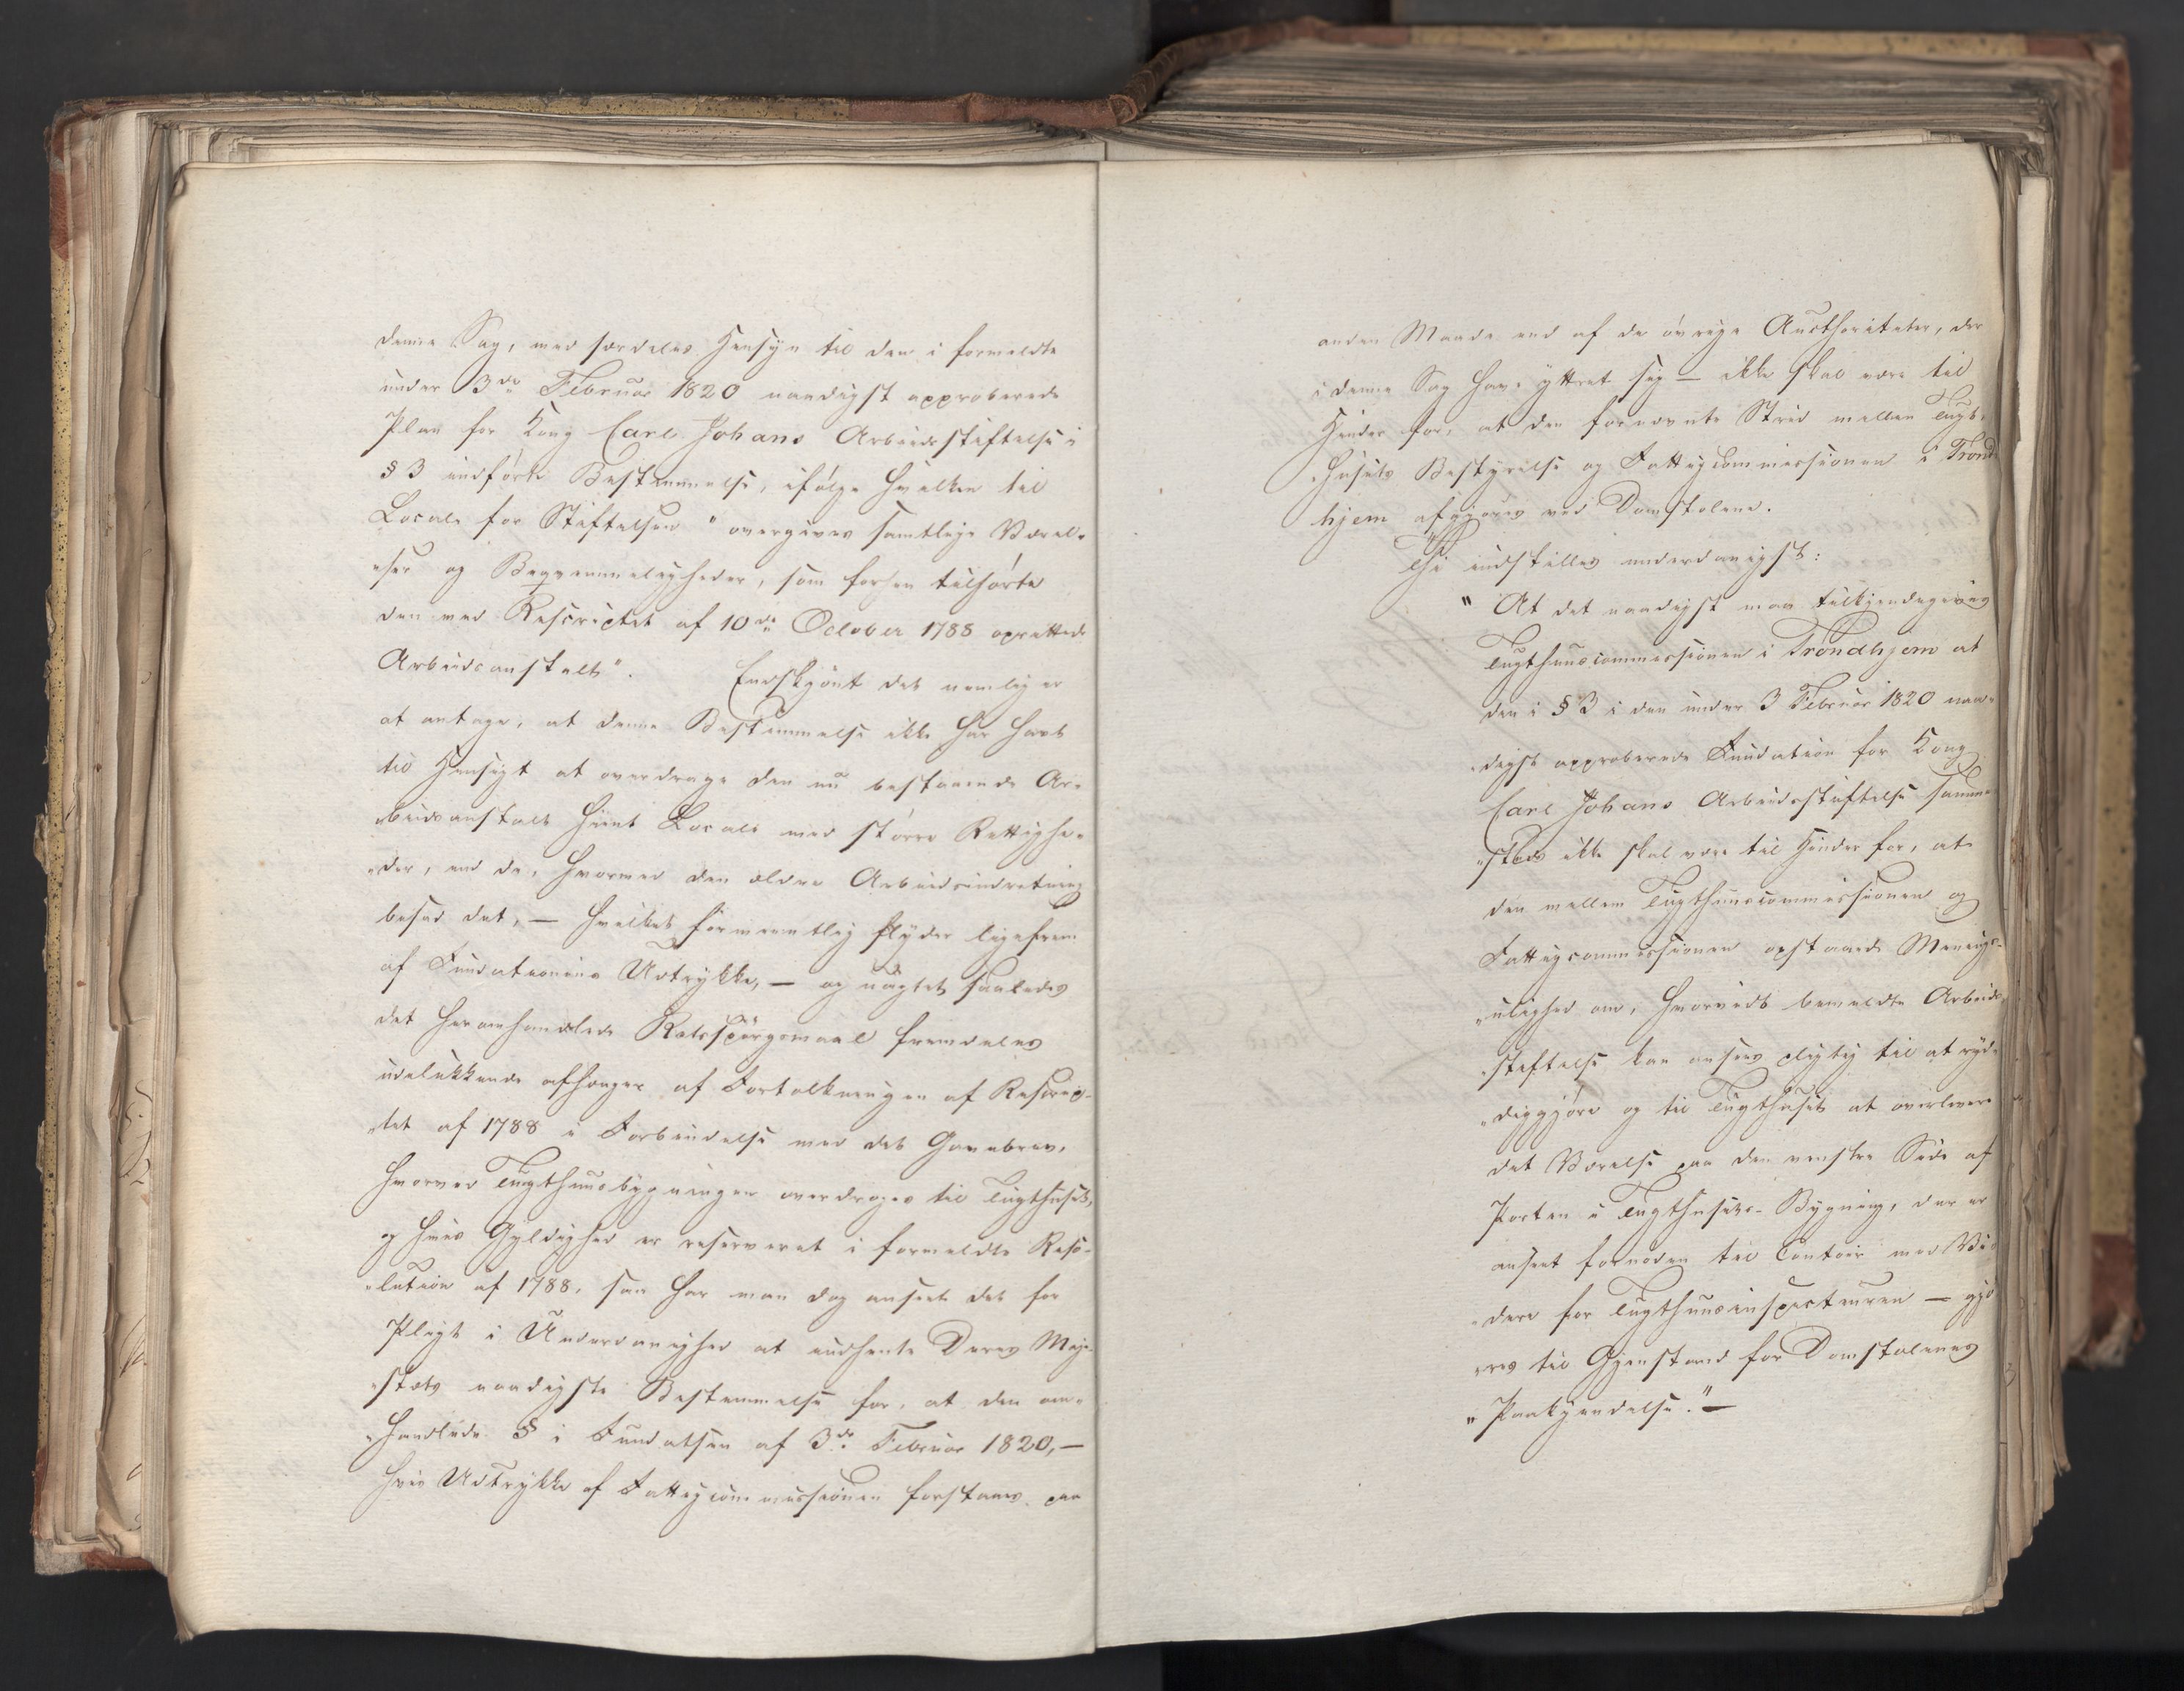 denne Sag, med særdeles Hensyn til den i formeldte
under 3de Februar 1820 naadigst approberede
Plan for Kong Carl Johans Arbeidsstiftelse i
§ 3 indførte Bestemmelse, ifølge hvilken til
Locale for Stiftelsen "overgives samtlige Værel-
"ser og Beqvemmeligheder, som forhen tilhørte
den ved Rescriptet af 10de October 1788 oprettede
Arbeidsanstalt". Endskjønt det nemlig er
at antage, at denne Bestemmelse ikke har havt
til Hensigt at overdrage den nu bestaaende Ar-
"beidsanstalt hiint Locale med større Rettighe-
"der, end de, hvormed den ældre Arbeidsindretning
besad det, — hvilket formeentlig flyder ligefrem
af Fundationens Udtrykke, — og uagtet saaledes
det heromhandlede Retsspørgsmaal fremdeles
udelukkende afhænger af Fortolkningen af Rescrip-
"tet af 1788 i Forbindelse med det Gavebrev,
hvorved Tugthuusbygningen overdroges til Tugthuset,
og hvis Gyldighed er reserveret i formeldte Reso-
"lution af 1788, saa har man dog anseet det for
Pligt i Underdanighed at indhente Deres Maje-
"stæts naadigste Bestemmelse for, at den om-
"handlede § i Fundatsen af 3de Februar 1820, —
hvis Udtrykke af Fattigcommissionen forstaaes paa
anden Maade end af de øvrige Aucthoriteter, der
i denne Sag have yttret sig — ikke skal være til
Hinder for, at den fornævnte Strid mellem Tugt-
"husets Bestyrelse og Fattigcommissionen i Trond
hjem afgjøres ved Domstolene.
Thi indstilles underdanigst:
" At det naadigst maa tilkjendegives
Tugthuuscommissionen i Trondhjem at
den i § 3 i den under 3 Februar 1820 naa-
"digst approberede Fundation for Kong
Carl Johans Arbeidsstiftelse samme-
"steds ikke skal være til Hinder for, at
den mellem Tugthuuscommissionen og
Fattigcommissionen opstaaede Menings-
"ulighed om, hvorvidt bemeldte Arbeids-
"stiftelse kan ansees pligtig til at ryd-
"diggjøre og til Tugthuset at overlevere
det Værelse paa den venstre Side af
Porten i Tugthusets-Bygning, der er
anseet fornøden til Contoir med Vi-
"dere for Tugthuusinspecteuren — gjø
"res til Gjenstand for Domstolenes
" Paakjendelse." —